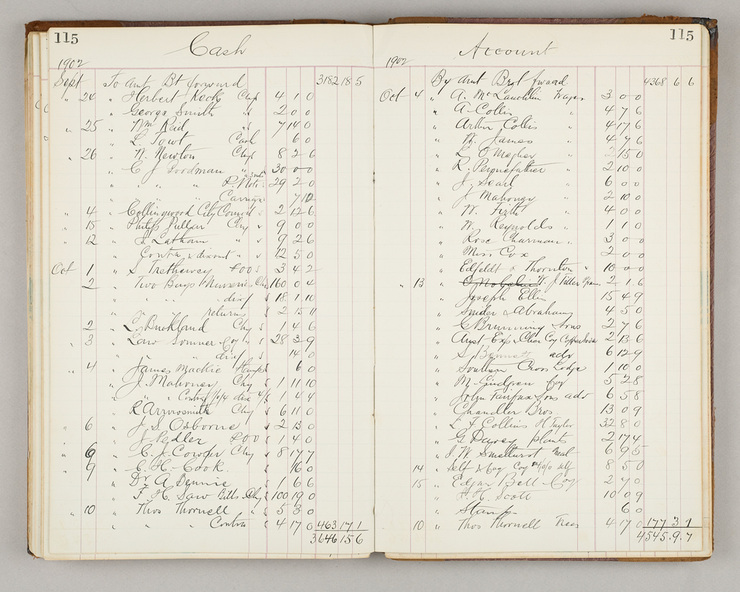 115
Cash
1902
Sept To Amt Bt forward 3182 18 5
" 24 " Herbert Keck Chq 4 1 0
" George Smith " 2 0 0
" 25 " Wm Reid " 7 14 0
" L. Cash 6 0
" 26 " N. Newton Chq 8 2 6
" C J Goodman " 30 0 0
" " " P. Note 29 2 0
" " " Carriage
" 4 " Collingwood City Council " 2 12 6
" 15 " Philip Pullar Chq " 9 0 0
" 12 " F. Latham " 9 2 6
" Contra discount " 12 5 0
Oct 1 " S. Trethewey POO 3 4 2
" 2 " Two Bays Chq 160 0 4
" " " disct 18 1 10
" " returns 2 15 11
" 2 " L. Buckland Chq 1 4 6
" 3 " Law Somner Coy " 28 2 9
" " " disct 14 0
" 4 " James Mackie 6 0
" J. Mahoney Chq 1 11 10
" " Contra 1 4 4
" R Arrowsmith Chq 6 11 0
" 6 " J. S. Osborne " 2 13 0
" J. Nodler POO 1 4 0
" 6 " C. J. Cowper Chq 8 17 7
" 9 " C. H. Cook. " 16 0
" Dr A Dennie 1 6 6
" F. H. Saw Bills Chq 100 19 0
" 10 " Thos Thornell " 5 3 0
" " " Contra 4 17 0 463 17 1
3646 15 6
115
Account
1902
By Amt Brot forward 4368 6 6
Oct 4 " A. McLauchlin Wages 3 0 0
" A. Collis " 4 7 6
" Arthur Collis " 4 17 6
" W. James " 4 4 6
" L. O'Meagher " 2 15 0
" R. Pennefather " 2 10 0
" J. Searl " 6 0 0
" J. Mahoney " 2 10 0
" W. Firth " 4 0 0
" W. Reynolds " 1 1 0
" Rose Charman " 3 0 0
" Mrs. Cox " 2 0 0
" Edfeldt & Thornton " 10 0 0
" 13 " W. J. 2 1 6
" Joseph Ellis 15 4 9
" Snider & Abrahams 4 5 0
" C Brunning & Sons 2 7 6
" Aust Exp & Chem Coy 2 13 6
" S. Bennett adv 6 12 9
" Southern Cross Lodge 1 10 0
" M. Lindgren for 5 2 8
" John Fairfax & Sons adv 6 5 8
" Chandler Bros. 13 0 9
" F. F. Collins H Taylor 32 8 0
" G. Davey plants 2 17 4
" J. W. Smellhurst 6 9 5
" 14 " Self & Coy 8 5 0
" 15 " Edgar Bell Coy 2 9 0
" F. H. Scott 10 0 9
" Stamps 6 0
" 10 " Thos Thornell Trees 4 17 0 177 3 1
4545 9 7